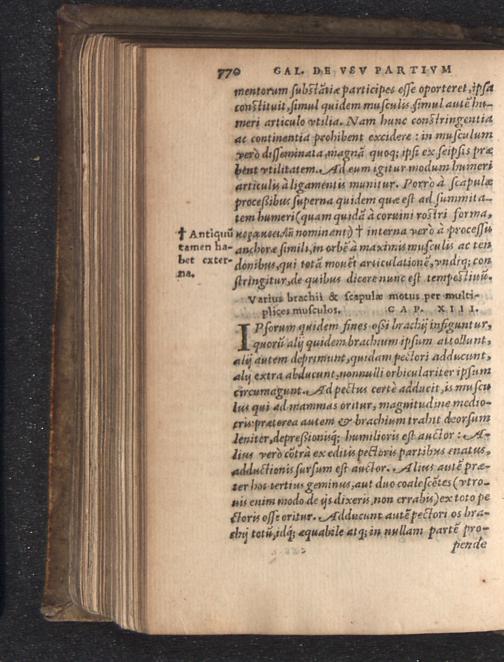 770 GAL. DE VSV PARTIVM
mentorum substãtiæ participes esse oporteret, ipsa
constituit, simul quidem musculis, simul autẽ hu-
meri articulo vtilia. Nam hunc constringentia
ac continentia prohibent excidere: in musculum
verò disseminata, magnã quoq; ipsi ex seipsis præ
bent vtilitatem. Ad eum igitur modum humeri
articulis à ligamentis munitur. Porrò à scapulæ
processibus superna quidem quæ est ad summita-
tem humeri (quam quidã à coruini rostri forma,
nominent) † interna verò à processu
† Antiquũ
tamen ha-
bet exter-
na.
anchoræ simili, in orbẽ à maximis musculis ac ten
donibus, qui totã mouẽt articulationẽ, vndiq; con
stringitur, de quibus dicere nunc est tempestiuũ.
Varius brachii & scapulæ motus per multi-
plices musculos. CAP. XIII.
IPsorum quidem fines ossi brachij infiguntur,
quorũ alij quidem brachium ipsum attollunt,
alij autem deprimunt, quidam pectori adducunt,
alij extra abducunt, nonnulli orbiculariter ipsum
circumagunt. Ad pectus certè adducit, is muscu
lus qui ad mammas oritur, magnitudine medio-
cris: præterea autem & brachium trahit deorsum
leniter, depressionisq; humilioris est auctor: A-
lius verò cõtrà ex editis pectoris partibus enatus,
adductionis sursum est auctor. Alius autẽ præ-
ter hos tertius geminus, aut duo coalescẽtes (vtro-
uis enim modo de ijs dixeris, non errabis) ex toto pe
ctoris osse oritur. Adducunt autẽ pectori os bra-
chij totũ, idq; æquabile atq; in nullam partẽ pro-
pende